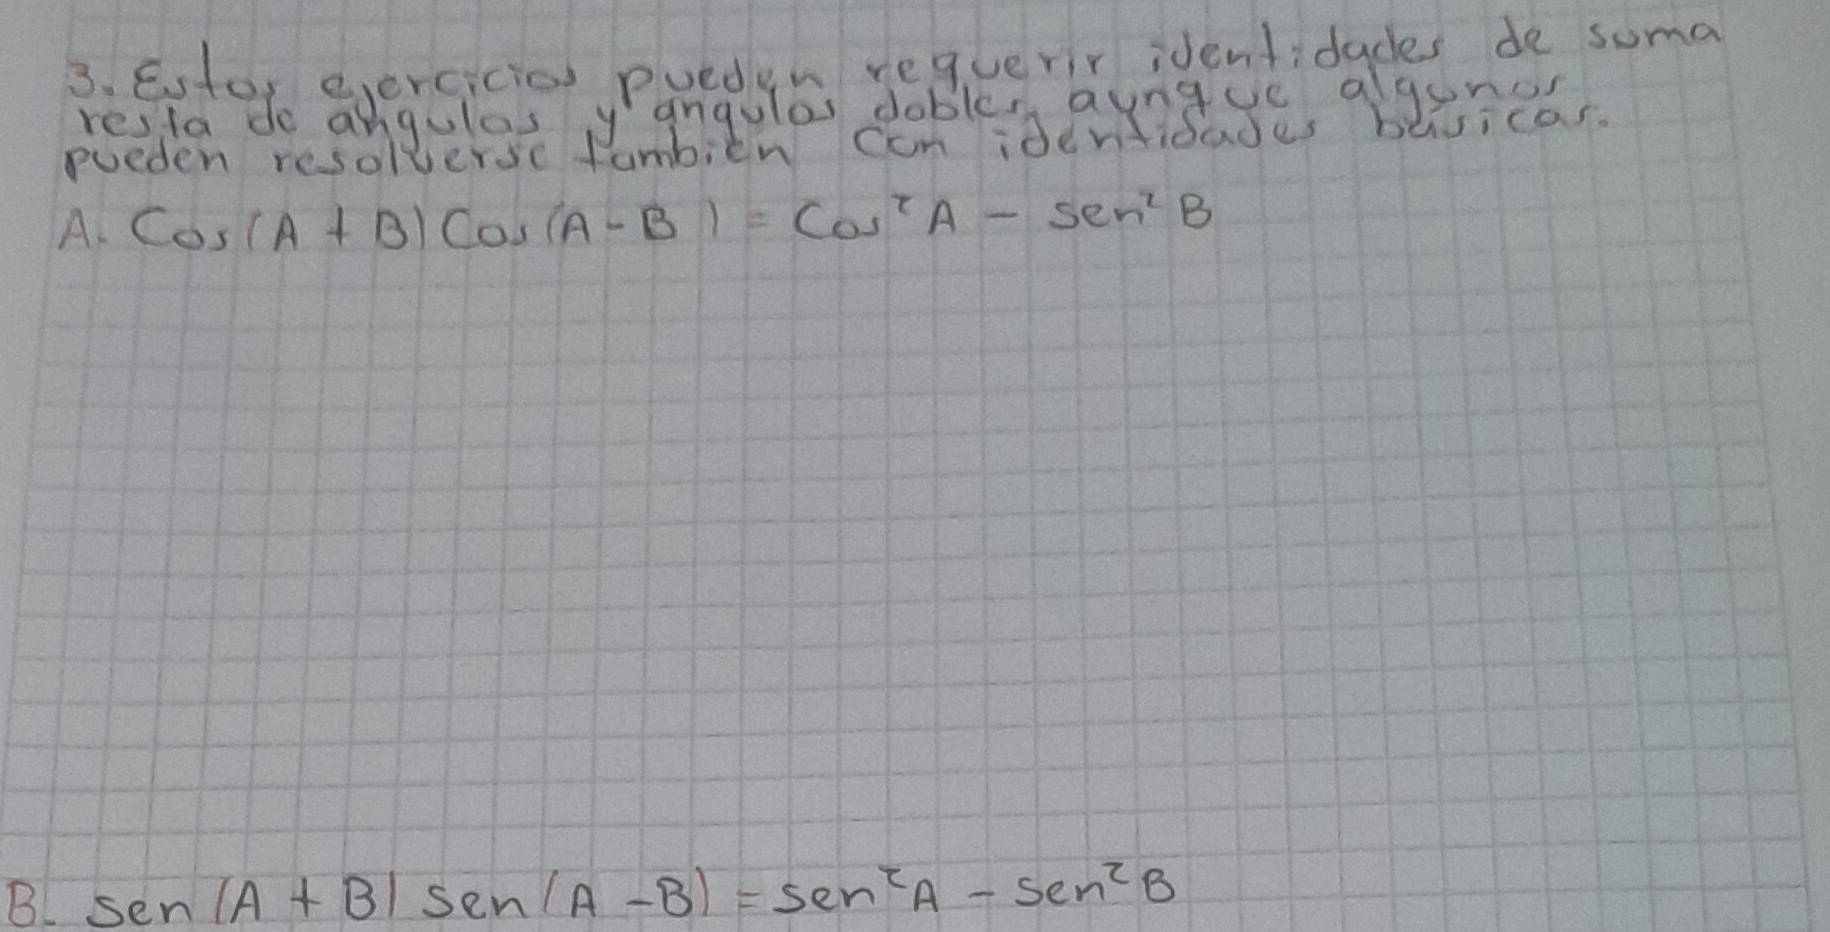 3. Estos ejercicios pueden requerir identidades de suma
resta de angulos y angulos dobles, aunque algunos
pueden resolverse tambien con identidades básicas.
A. Cos(A + B) Cos(A - B) = Cos²A - sen²B
B. sen(A + B) sen(A - B) = sen²A - sen²B